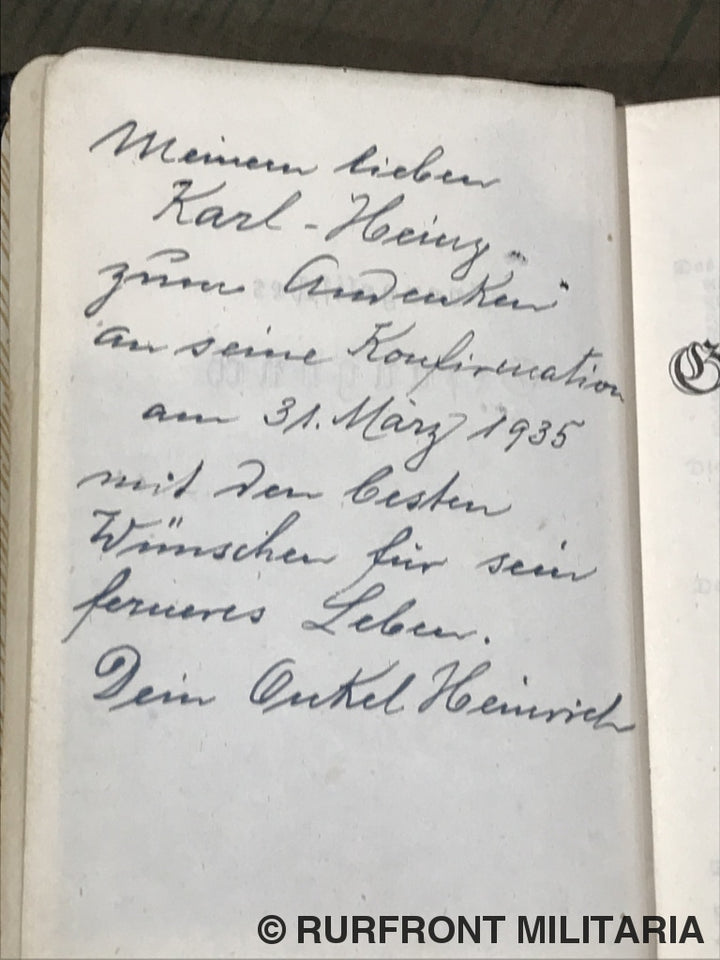 Meinem lieben
Karl-Heinz
zum Andenken
an seine Konfirmation
am 31. März 1935
mit den besten
Wünschen für sein
ferneres Leben.
Dein Onkel Heinrich
G
© RURFRONT MILITARIA